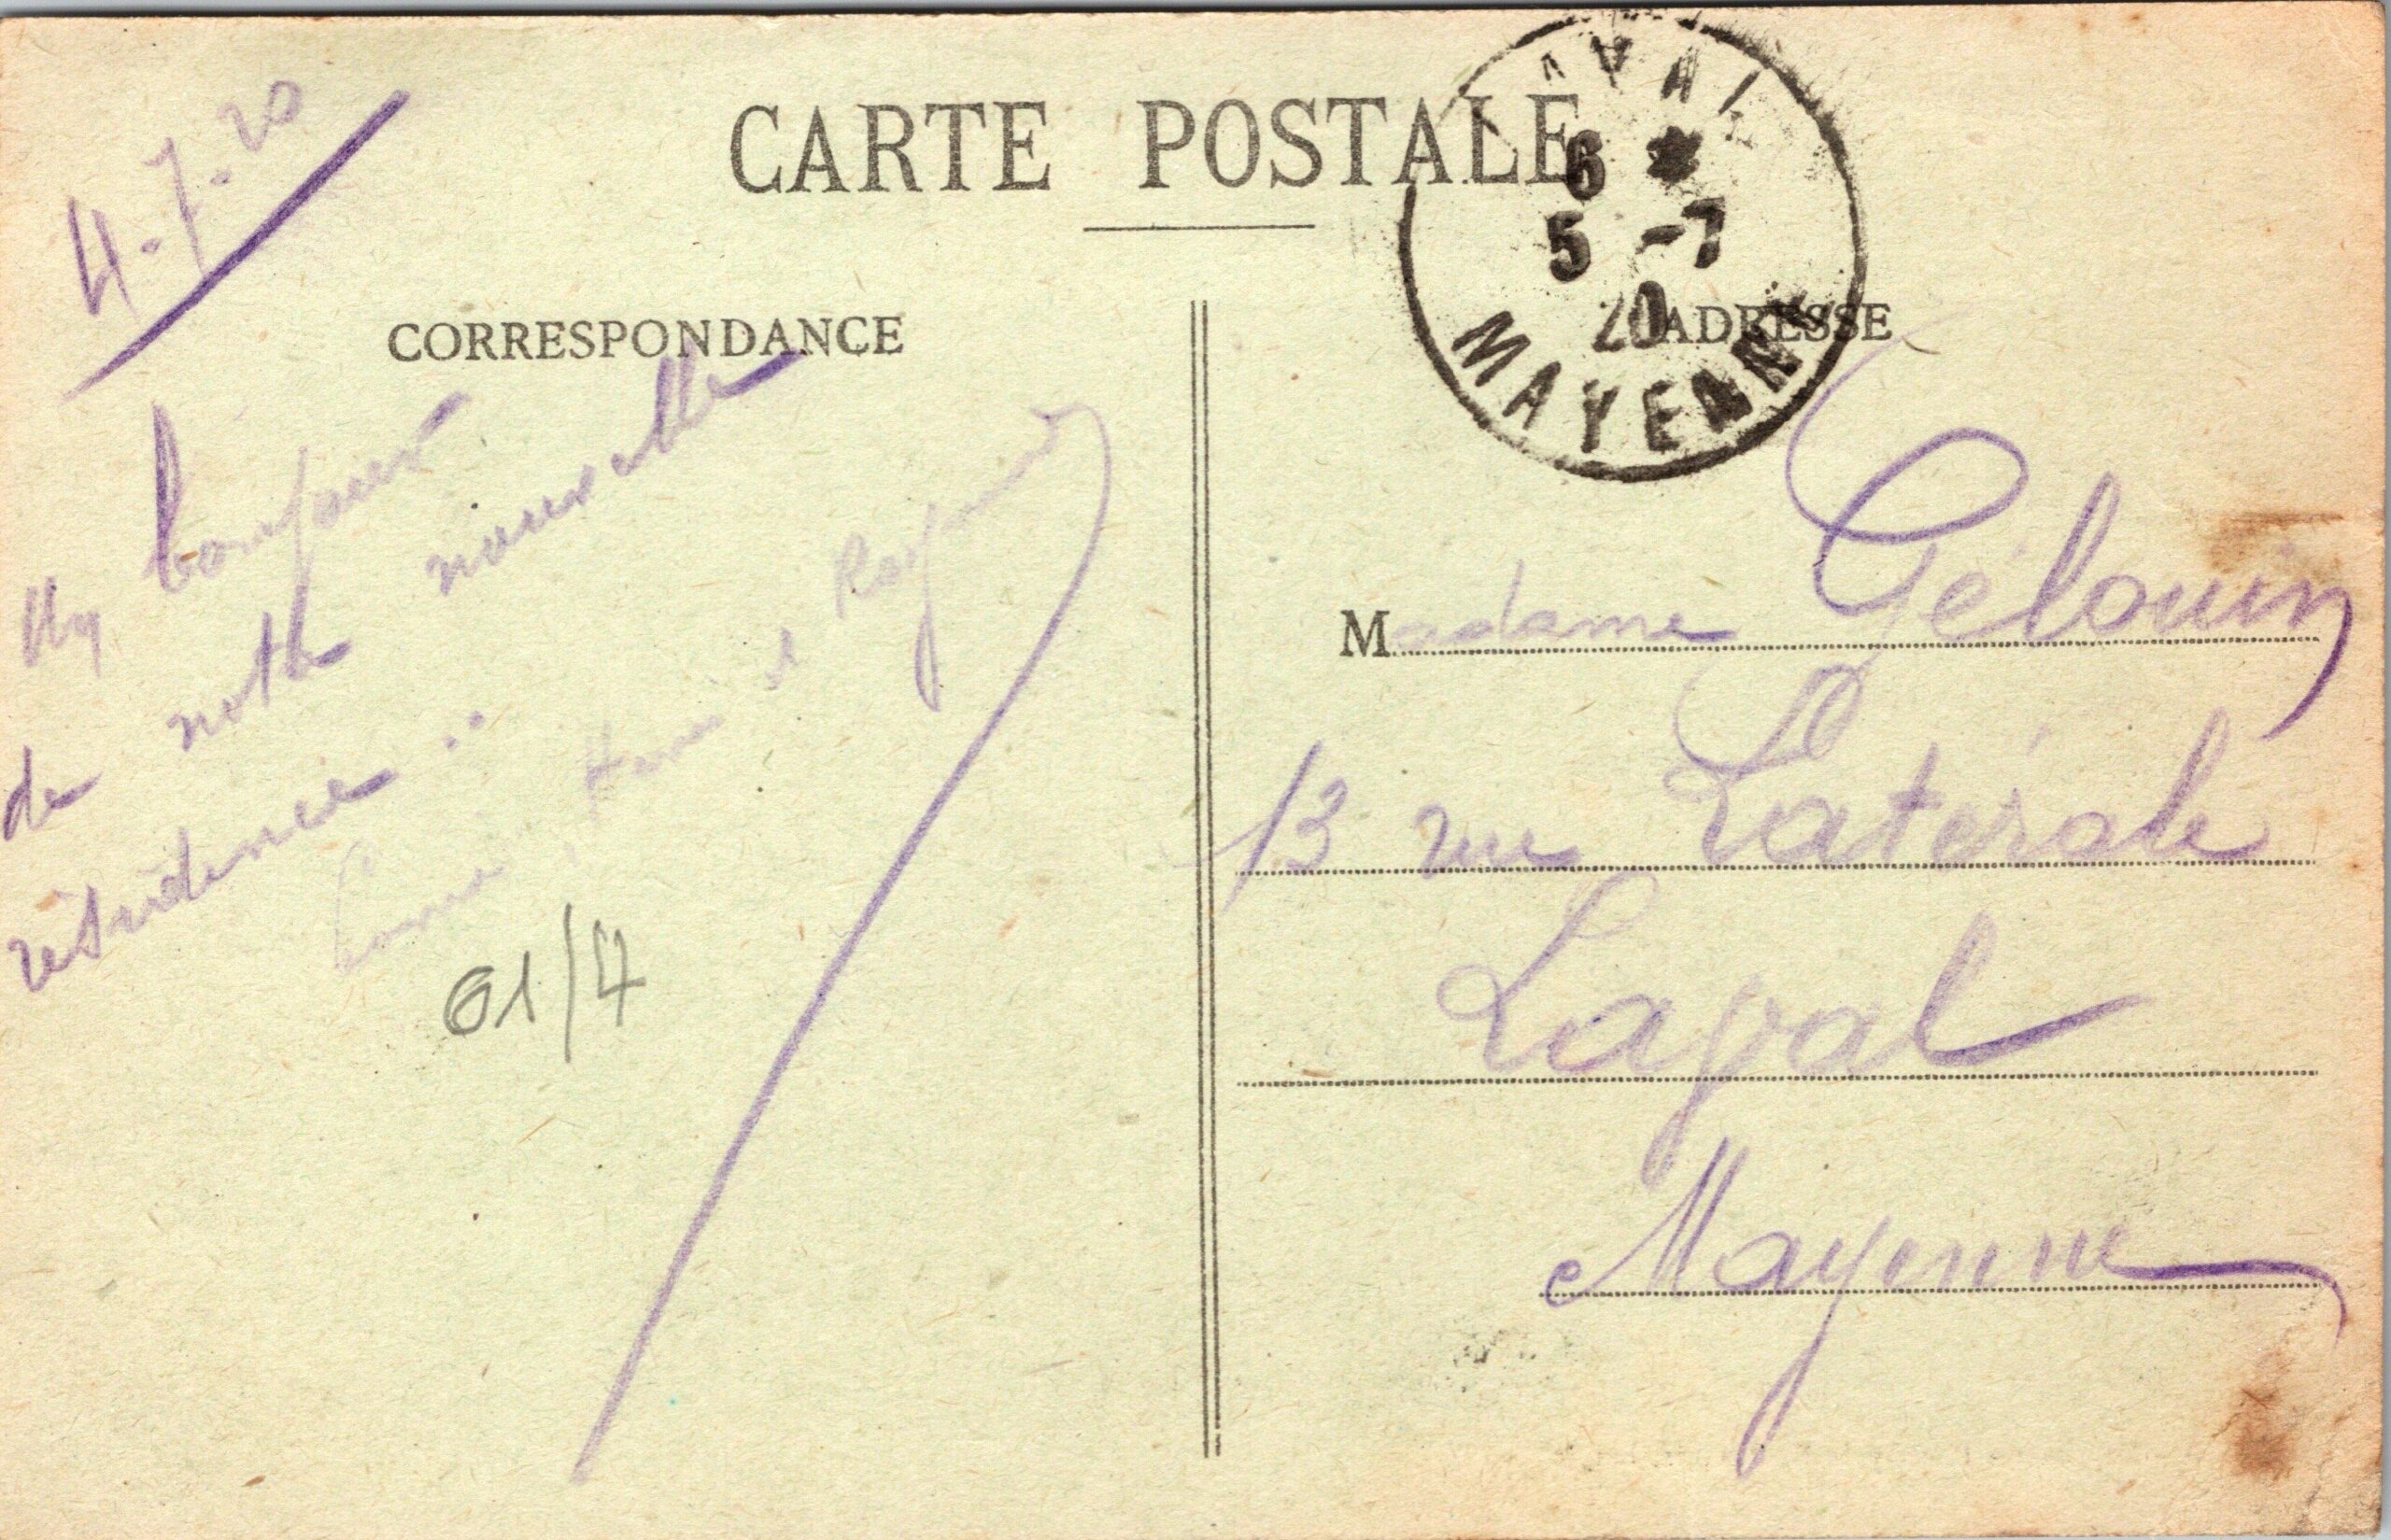 CARTE POSTALE
LAVAL
6 *
5 -7
20
MAYENNE
CORRESPONDANCE
ADRESSE
4-7-20
Un bonjour
de notre nouvelle
résidence..
Henri et Raymond
61/4
Madame Gélouin
13 rue Latérale
Laval
Mayenne